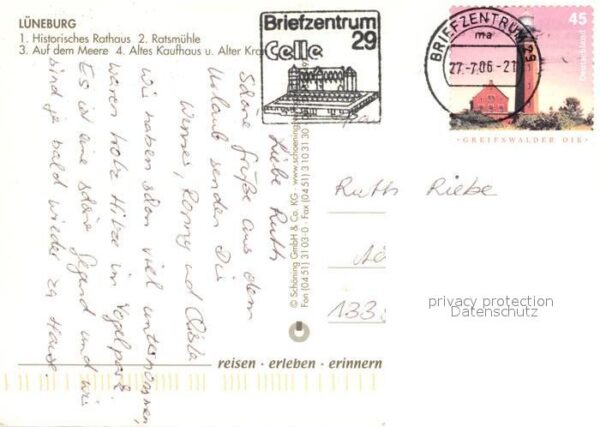 LÜNEBURG
1. Historisches Rathaus 2. Ratsmühle
3. Auf dem Meere 4. Altes Kaufhaus u. Alter Kra
Briefzentrum
29
Celle
BRIEFZENTRUM 29
ma
27.-7.06-21
45
Deutschland
GREIFSWALDER OIE
Liebe Ruth
Schöne Grüße aus dem
Urlaub senden Dir
Werner, Ronny und
wir haben schon viel unternommen,
waren trotz Hitze im Vogelpark.
Es ist eine schöne Gegend und wir
sind ja bald wieder zu Hause.
© Schöning GmbH & Co. KG · www.schoening
Fon (04 51) 31 03-0 · Fax (04 51) 3 10 31 30
Ruth Riebe
133
privacy protection
Datenschutz
reisen · erleben · erinnern